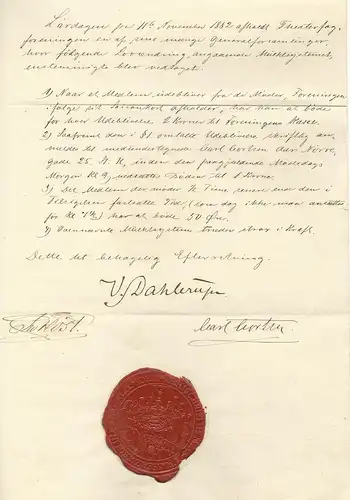 Lördagen den 11te November 1882 afholdt Theaterfag-
foreningen en af sine mange Generalforsamlinger,
hvor følgende Lovændring angaaende Mulktsystemet,
enstemmigt blev vedtaget.
1) Naar et Medlem udebliver fra de Møder, Foreningen
ifølge sit afholder, har han at bøde
for hver Udeblivelse 2 Kroner til Foreningens Kasse.
2) Saafremt den i §1 omtalte Udeblivelse skriftlig an-
meldes til undertegnede Carl Cortsen Nørre-
gade 25 inden den paagjældende Mødedags
Morgen Kl 9, nedsættes Bøden til 1 Krone.
3) Det Medlem der møder ½ Time senere end den i
fastsatte Tid, (som dog ikke maa ansættes
før Kl 7½) har at bøde 50 Øre.
4) Mulktsystem træder strax i Kraft.
Dette til behagelig Efterretning.
V. Dahlerup
Carl Cortsen